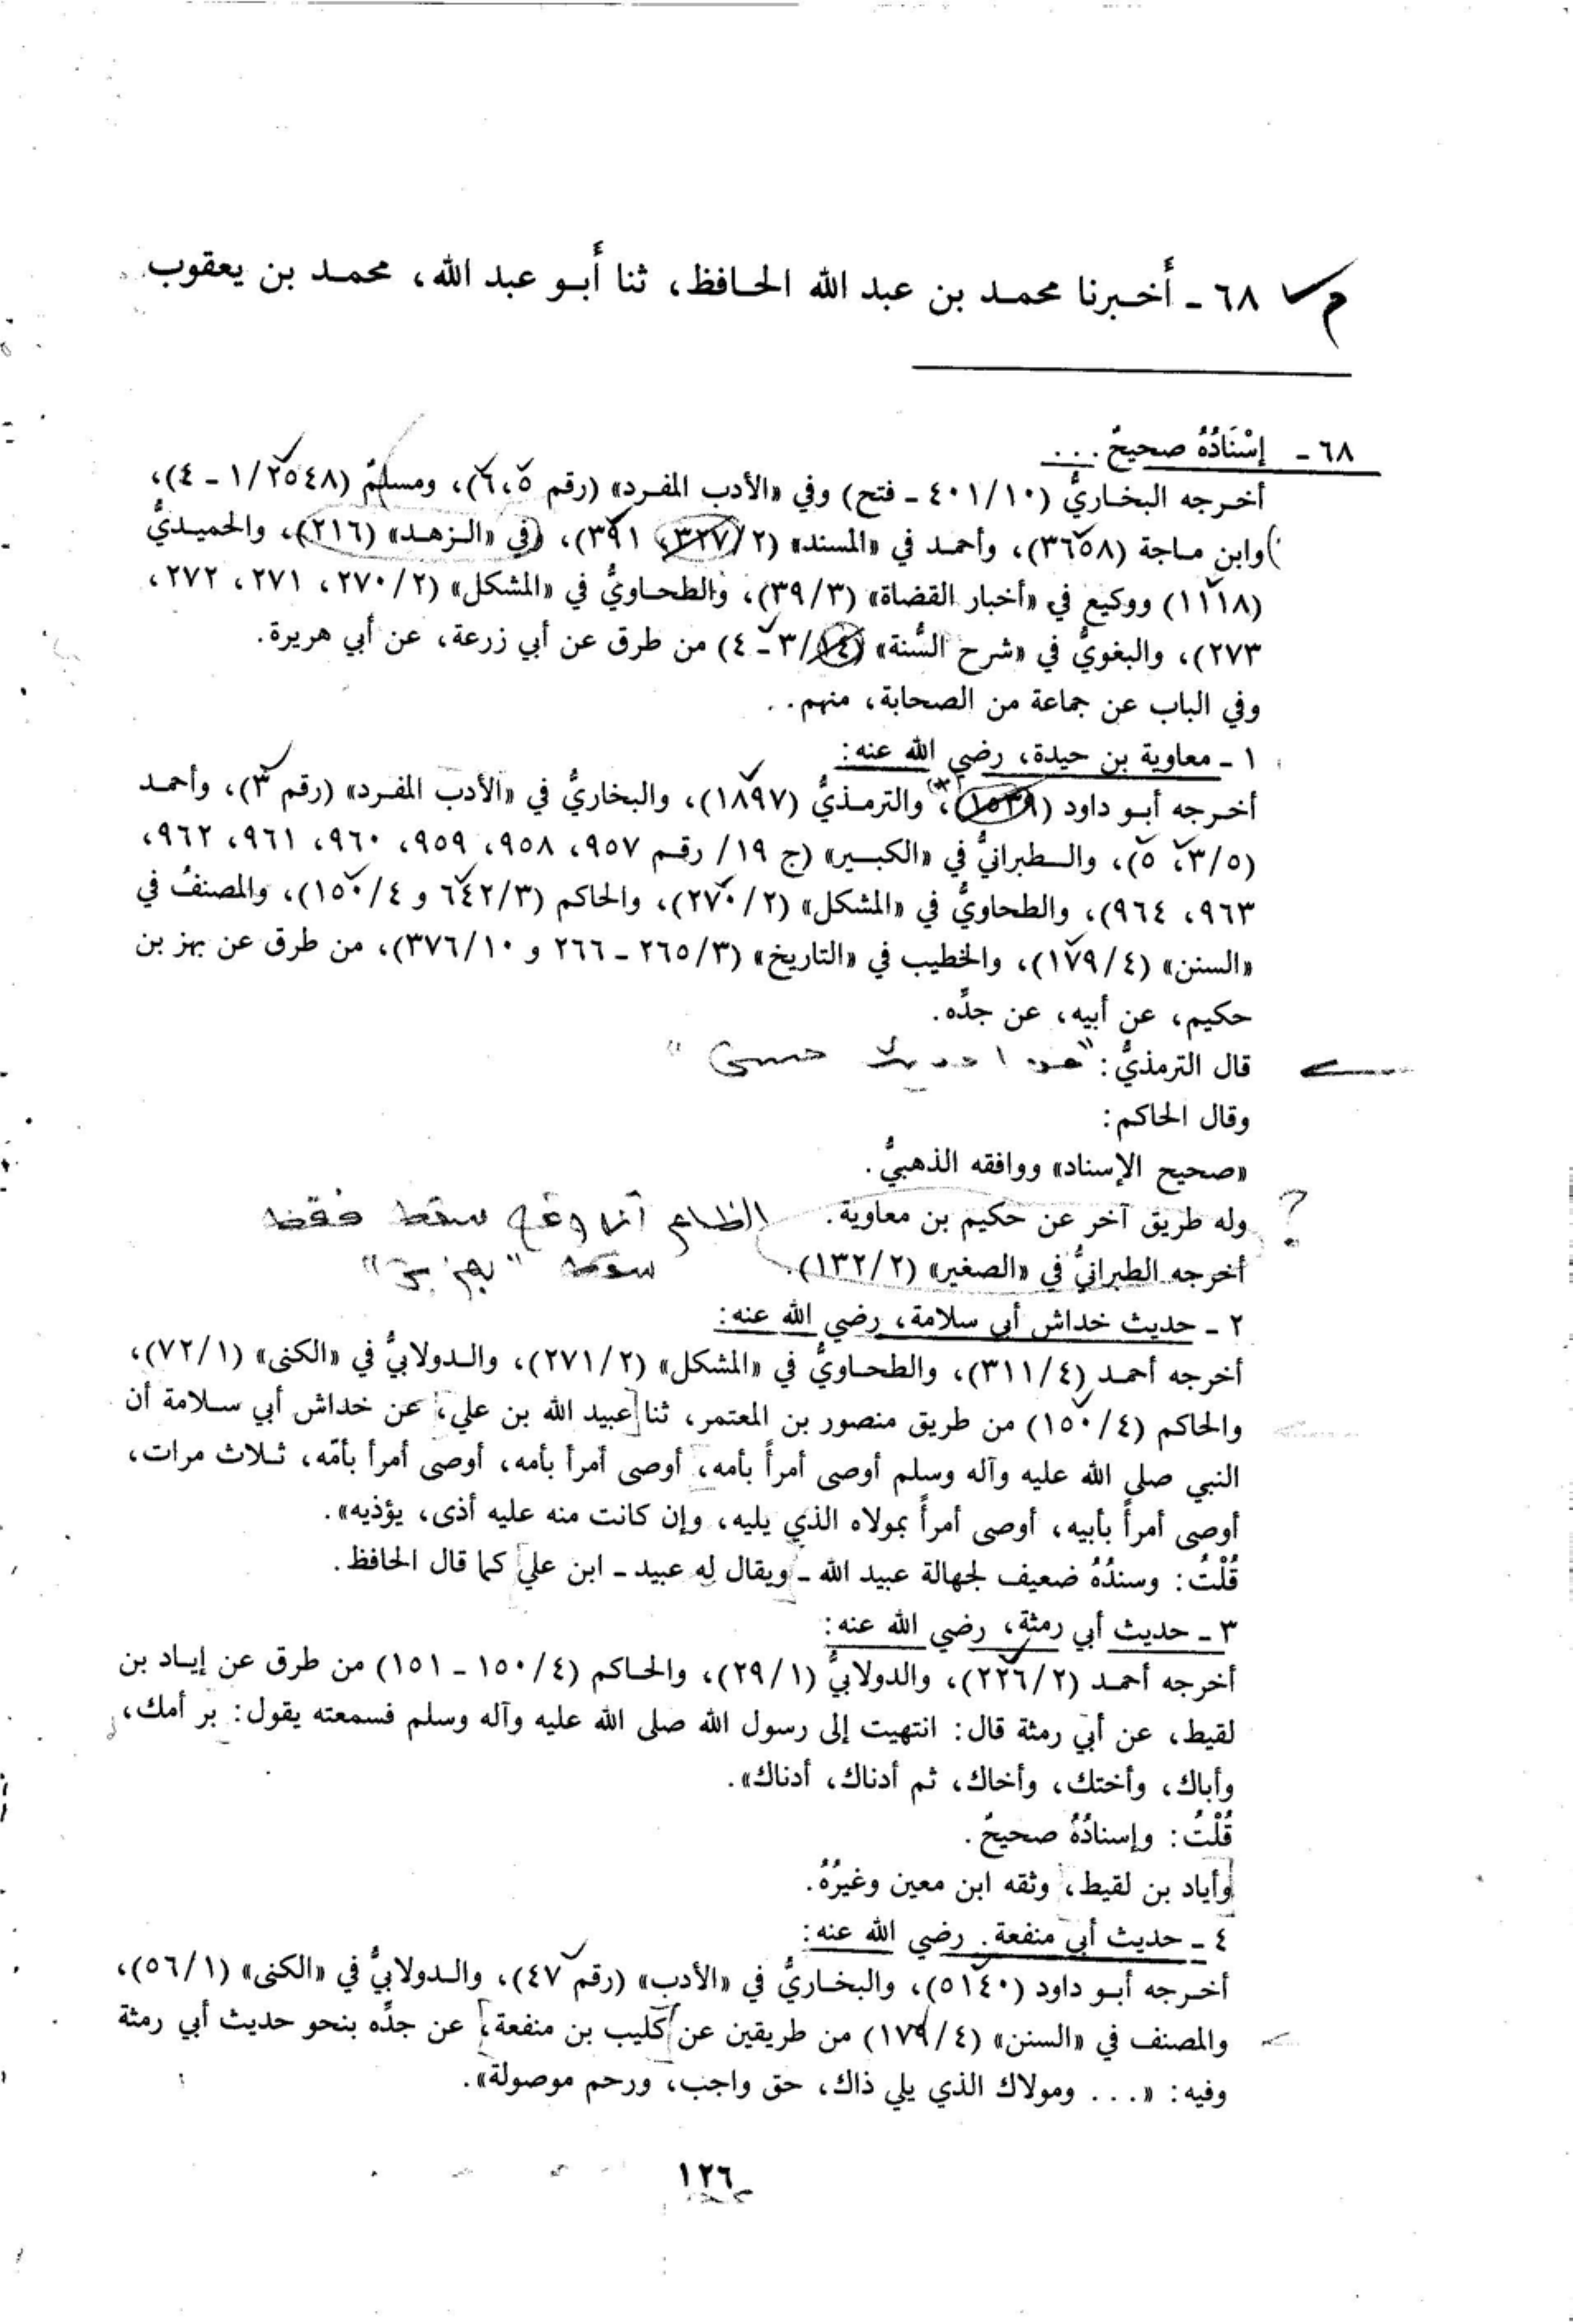 م ٦٨ ـ أخـبرنا محمـد بن عبد الله الحـافظ، ثنا أبـو عبد الله، محمـد بن يعقوب
٦٨ ـ إسْنَادُهُ صحيحٌ . . .
أخـرجه البخـاريُّ (٤٠١/١٠ ـ فتح) وفي «الأدب المفـرد» (رقم ٥، ٦)، ومسلمٌ (٢٥٤٨/١ ـ ٤)،
وابن مـاجة (٣٦٥٨)، وأحمـد في «المسند» (٣٢٧/٢، ٣٩١)، وفي «الـزهـد» (٢١٦)، والحميـديُّ
(١١١٨) ووكيع في «أخبار القضاة» (٣٩/٣)، والطحـاويُّ في «المشكل» (٢٧٠/٢، ٢٧١، ٢٧٢،
٢٧٣)، والبغويُّ في «شرح السُّنة» (١٤/٣ ـ ٤) من طرق عن أبي زرعة، عن أبي هريرة.
وفي الباب عن جماعة من الصحابة، منهم. .
١ ـ معاوية بن حيدة، رضي الله عنه:
أخـرجه أبـو داود (١٥٣٩)، والترمـذيُّ (١٨٩٧)، والبخاريُّ في «الأدب المفـرد» (رقم ٣)، وأحمـد
(٣/٥، ٥)، والـطبرانيُّ في «الكبـير» (ج ١٩/ رقـم ٩٥٧، ٩٥٨، ٩٥٩، ٩٦٠، ٩٦١، ٩٦٢،
٩٦٣، ٩٦٤)، والطحاويُّ في «المشكل» (٢٧٠/٢)، والحاكم (٦٤٢/٣ و ١٥٠/٤)، والمصنفُ في
«السنن» (١٧٩/٤)، والخطيب في «التاريخ» (٢٦٥/٣ ـ ٢٦٦ و ٣٧٦/١٠)، من طرق عن بهز بن
حكيم، عن أبيه، عن جدِّه.
قال الترمذيُّ: "هذا حديث حسن"
وقال الحاكم:
«صحيح الإسناد» ووافقه الذهبيُّ.
؟ وله طريق آخر عن حكيم بن معاوية. الظاهر أنه وقع سقط فقط
أخرجه الطبرانيُّ في «الصغير» (١٣٢/٢). سقط "بهز بن"
٢ ـ حديث خداش أبي سلامة، رضي الله عنه:
أخرجه أحمـد (٣١١/٤)، والطحـاويُّ في «المشكل» (٢٧١/٢)، والـدولابيُّ في «الكنى» (٧٢/١)،
والحاكم (١٥٠/٤) من طريق منصور بن المعتمر، ثنا [عبيد الله بن علي]، عن خداش أبي سـلامة أن
النبي صلى الله عليه وآله وسلم أوصى أمرأً بأمه، أوصى أمرأ بأمه، أوصى أمرأ بأمّه، ثـلاث مرات،
أوصى أمرأً بأبيه، أوصى أمرأً بمولاه الذي يليه، وإن كانت منه عليه أذى، يؤذيه».
قُلْتُ: وسندُهُ ضعيف لجهالة عبيد الله ـ [ويقال له عبيد ـ ابن علي] كما قال الحافظ.
٣ ـ حديث أبي رمثة، رضي الله عنه:
أخرجه أحمـد (٢٢٦/٢)، والدولابيُّ (٢٩/١)، والحـاكم (١٥٠/٤ ـ ١٥١) من طرق عن إيـاد بن
لقيط، عن أبي رمثة قال: انتهيت إلى رسول الله صلى الله عليه وآله وسلم فسمعته يقول: بر أمك،
وأباك، وأختك، وأخاك، ثم أدناك، أدناك».
قُلْتُ: وإسنادُهُ صحيحٌ.
[وأياد بن لقيط]، وثقه ابن معين وغيرُهُ.
٤ ـ حديث أبي منفعة. رضي الله عنه:
أخـرجه أبـو داود (٥١٤٠)، والبخـاريُّ في «الأدب» (رقم ٤٧)، والـدولابيُّ في «الكنى» (٥٦/١)،
والمصنف في «السنن» (١٧٩/٤) من طريقين عن [كليب بن منفعة]، عن جدِّه بنحو حديث أبي رمثة
وفيه: «. . . ومولاك الذي يلي ذاك، حق واجب، ورحم موصولة».
١٢٦